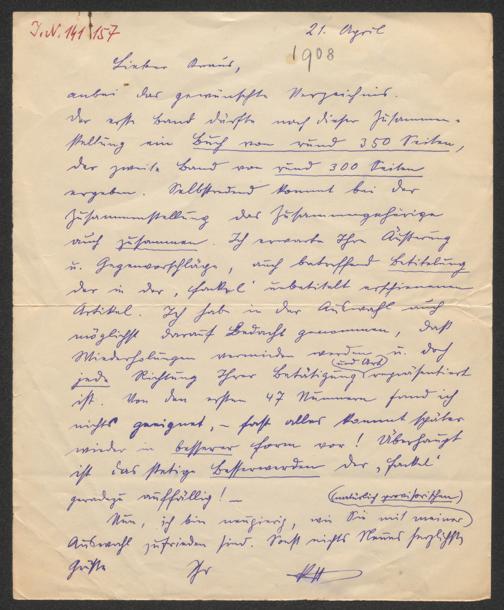 I.N. 141.157
21. April
1908
Lieber Kraus,
anbei das gewünschte Verzeichnis.
Der erste Band dürfte nach dieser Zusammen-
stellung ein Buch von rund 350 Seiten,
der zweite Band von rund 300 Seiten
ergeben. Selbstredend kommt bei der
Zusammenstellung das Zusammengehörige
auch zusammen. Ich erwarte Ihre Äußerung
u. Gegenvorschläge, auch betreffend Betitelung
der in der „Fackel“ unbetitelt erschienenen
Artikel. Ich habe in der Auswahl auch
möglichst darauf Bedacht genommen, daß
Wiederholungen vermieden werden u. doch
jede Richtung (und Art) Ihrer Betätigung repräsentiert
ist. Von den ersten 47 Nummern fand ich
nichts geeignet, – fast alles kommt später
wieder in besserer Form vor! Überhaupt
ist das stetige Besserwerden der „Fackel“
geradezu auffällig! –
Nun, ich bin neugierig, wie Sie mit meiner (natürlich provisorischen)
Auswahl zufrieden sind. Sonst nichts Neues herzlichste
Grüße Ihr